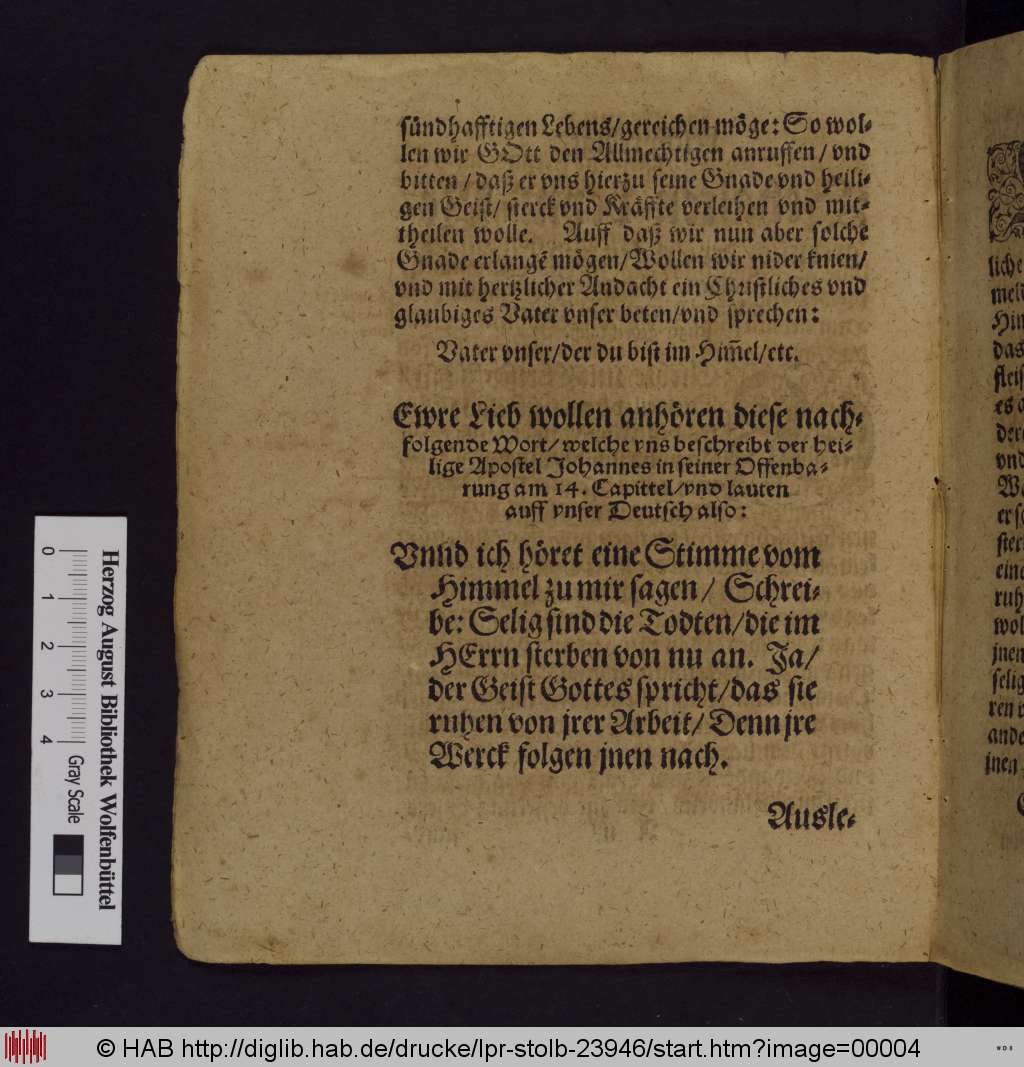 sündhafftigen Lebens/gereichen möge: So wol-
len wir GOtt den Allmechtigen anruffen/ vnd
bitten/ daß er vns hierzu seine Gnade vnd heili-
gen Geist/ sterck vnd Kräffte verleihen vnd mit-
theilen wolle. Auff daß wir nun aber solche
Gnade erlangẽ mögen/Wollen wir nider knien/
vnd mit hertzlicher Andacht ein Christliches vnd
glaubiges Vater vnser beten/vnd sprechen:
Vater vnser/der du bist im Him̃el/etc.
Ewre Lieb wollen anhören diese nach-
folgende Wort/welche vns beschreibt der hei-
lige Apostel Johannes in seiner Offenba-
rung am 14. Capittel/vnd lauten
auff vnser Deutsch also:
Vnnd ich höret eine Stimme vom
Himmel zu mir sagen/ Schrei-
be: Selig sind die Todten/die im
HErrn sterben von nu an. Ja/
der Geist Gottes spricht/das sie
ruhen von jrer Arbeit/ Denn jre
Werck folgen jnen nach.
Ausle-
liche
das
es a
vnd
ruh
wol
jnen
selig
ande
jnen
Herzog August Bibliothek Wolfenbüttel
0 1 2 3 4 Gray Scale
© HAB http://diglib.hab.de/drucke/lpr-stolb-23946/start.htm?image=00004